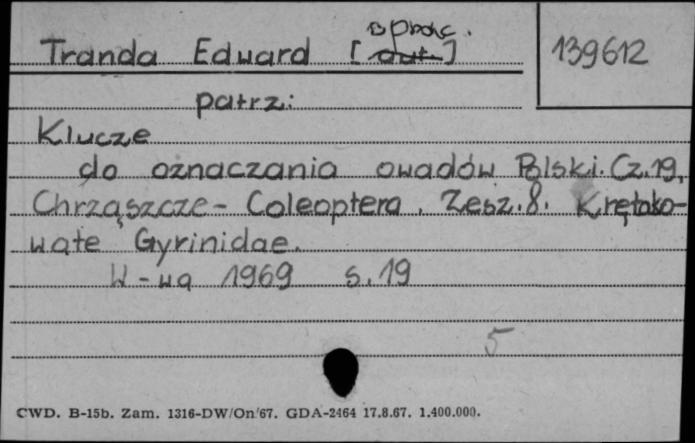 oprac.
Tranda Edward [aut.]
139612
patrz:
Klucze
do oznaczania owadów Polski. Cz. 19,
Chrząszcze - Coleoptera. Zesz. 8. Krętako-
wate Gyrinidae.
W-wa 1969 s. 19
5
CWD. B-15b. Zam. 1316-DW/On/67. GDA-2464 17.8.67. 1.400.000.